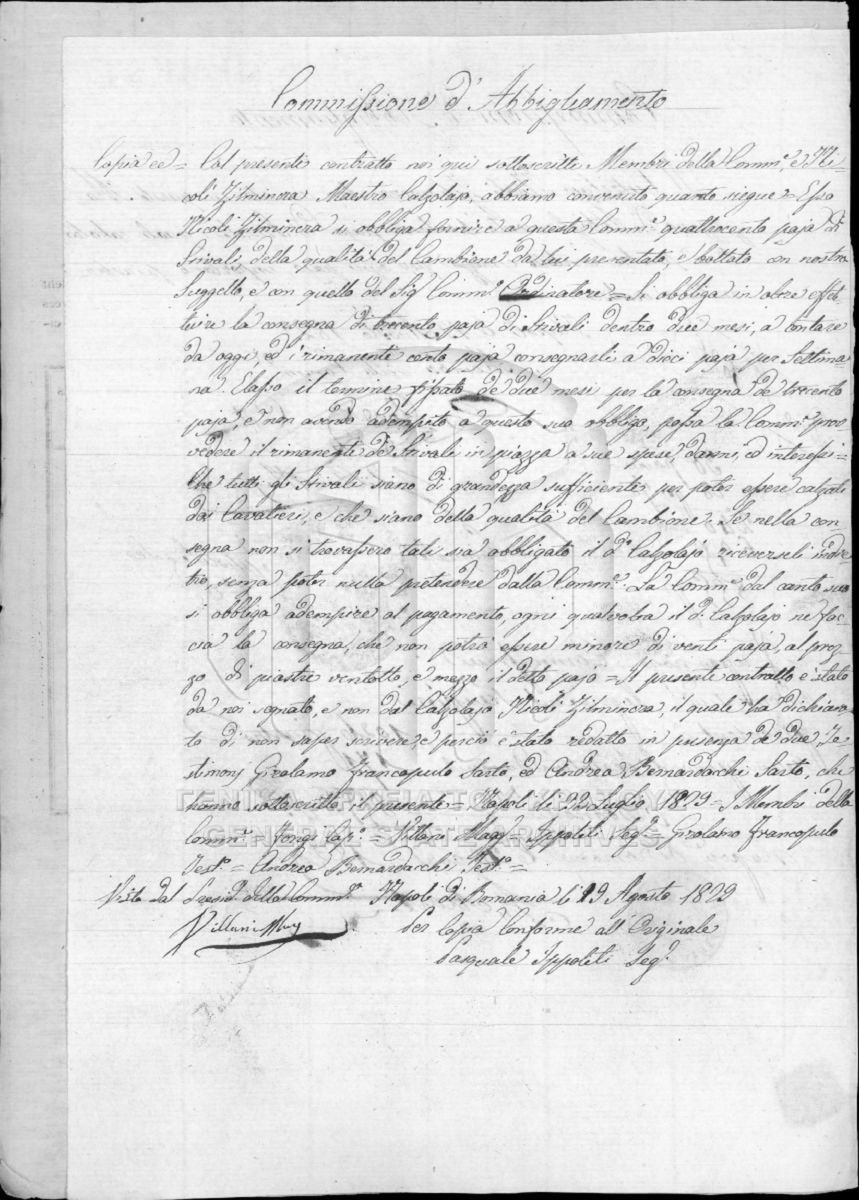 Commissione d'Abbigliamento
Copia ec = Col presente contratto noi qui sottoscritti Membri della Comm.e, e Ni-
colò Zilmincra Maestro Calzolajo, abbiamo convenuto quanto siegue = Esso
Nicolò Zilmincra si obbliga fornire a questa Comm.e quattrocento paja di
Stivali della qualità del Cambione da lui presentato, e bollato con nostro
Suggello, e con quello del Sig.r Comm.e Ordinatore = Si obbliga in oltre effet-
tuire la consegna di trecento paja di Stivali dentro due mesi, a contare
da oggi, ed i rimanente cento paja consegnarli a dieci paja per Settima-
na Elasso il termine fissato de' due mesi per la consegna de' trecento
paja, e non avendo adempito a questo suo obbligo, possa la Comm.e prov-
vedere il rimanente de' Stivali in piazza a sue spese, danni, ed interessi =
Che tutti gli Stivali siano di grandezza sufficiente per poter essere calzati
dai Cavalieri, e che siano della qualità del Cambione. Se nella con-
segna non si trovassero tali sia obbligato il d.o Calzolajo riceverseli indie-
tro, senza poter nulla pretendere dalla Comm.e. La Comm.e dal canto suo
si obbliga adempire al pagamento, ogni qualvolta il d.o Calzolajo ne fac-
cia la consegna, che non potrà essere minore di venti paja, al prez-
zo di piastre ventotto, e mezzo il detto pajo = Il presente contratto è stato
da noi segnato, e non dal Calzolajo Nicolò Zilmincra, il quale ha dichiara-
to di non saper scrivere, e perciò è stato redatto in presenza de' due Te-
stimonj Girolamo Francopulo Sarto, ed Andrea Bernardarchi Sarto, che
hanno sottoscritto il presente = Napoli li 22 Luglio 1829 = I Membri della
Comm.e Cap.o = Villani Magg.e Ippoliti Seg.o = Girolamo Francopulo
Test.o = Andrea Bernardarchi Test.o =
Visto dal Presid.e della Comm.e Napoli di Romania li 19 Agosto 1829
Villani Mag Per Copia Conforme all'Originale
Pasquale Ippoliti Seg.o
ΓΕΝΙΚΑ ΑΡΧΕΙΑ ΤΟΥ ΚΡΑΤΟΥΣ
GENERAL STATE ARCHIVES